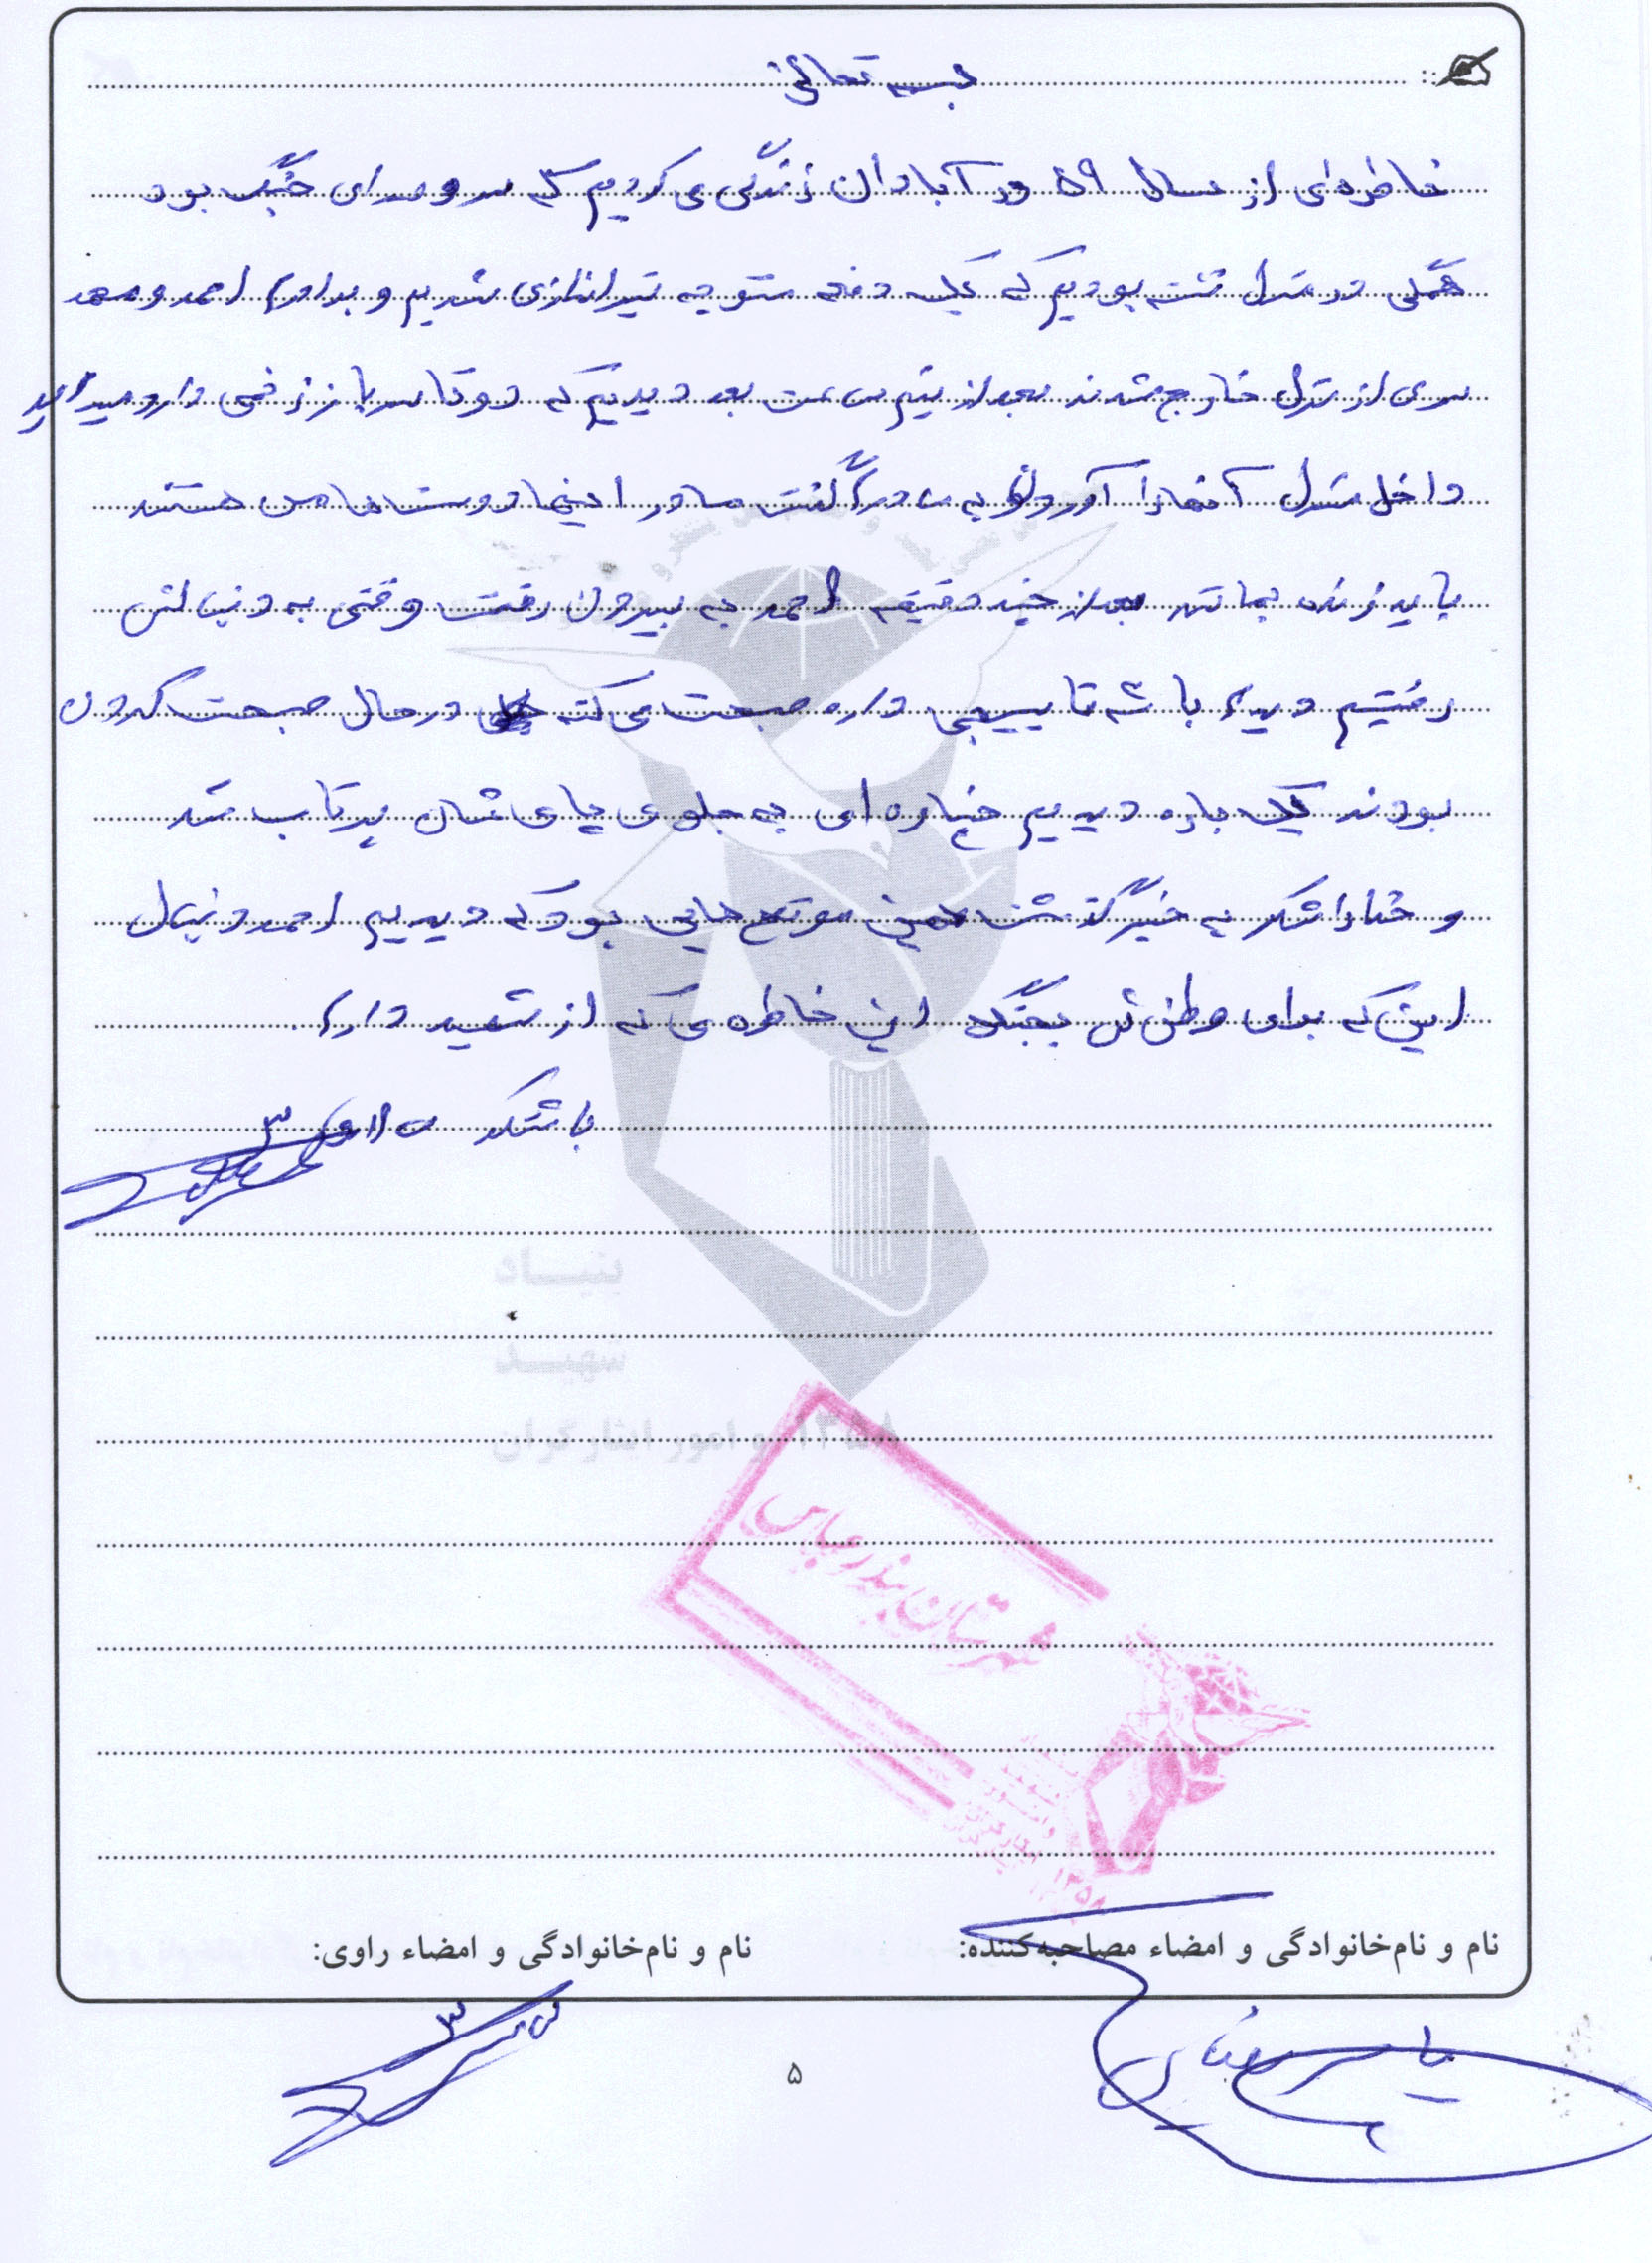 بسمه تعالی
خاطره‌ای از سال ۵۹ در آبادان زندگی می کردیم که سر و صدای جنگ بود
همگی در منزل نشسته بودیم که یک دفعه متوجه تیراندازی شدیم و برادرم احمد و محمد
سری از منزل خارج شدند بعد از نیم ساعت بعد دیدیم که دو تا سرباز زخمی دارو میدارید
داخل منزل آنها را آوردند به مادرم گفت مادر اینها دوست های من هستند
باید زنده بمانند بعد از چند دقیقه احمد به بیرون رفت وقتی به دنبالش
رفتیم دیدم با سه تا بسیجی داره صحبت می کنه در حال صحبت کردن
بودند یک باره دیدیم خمپاره ای به جلوی پای شان پرتاب شد
و خدا را شکر به خیر گذشت همین موقع هایی بود که دیدیم احمد دنبال
این که برای وطن ش بجنگد این خاطره ی که از شهید دارم
با تشکر
بنیاد
شهید
و امور ایثارگران ۱۳۵۸
شهرستان بندرعباس
۱۳۵۸
نام و نام‌خانوادگی و امضاء مصاحبه‌کننده: نام و نام‌خانوادگی و امضاء راوی:
۵